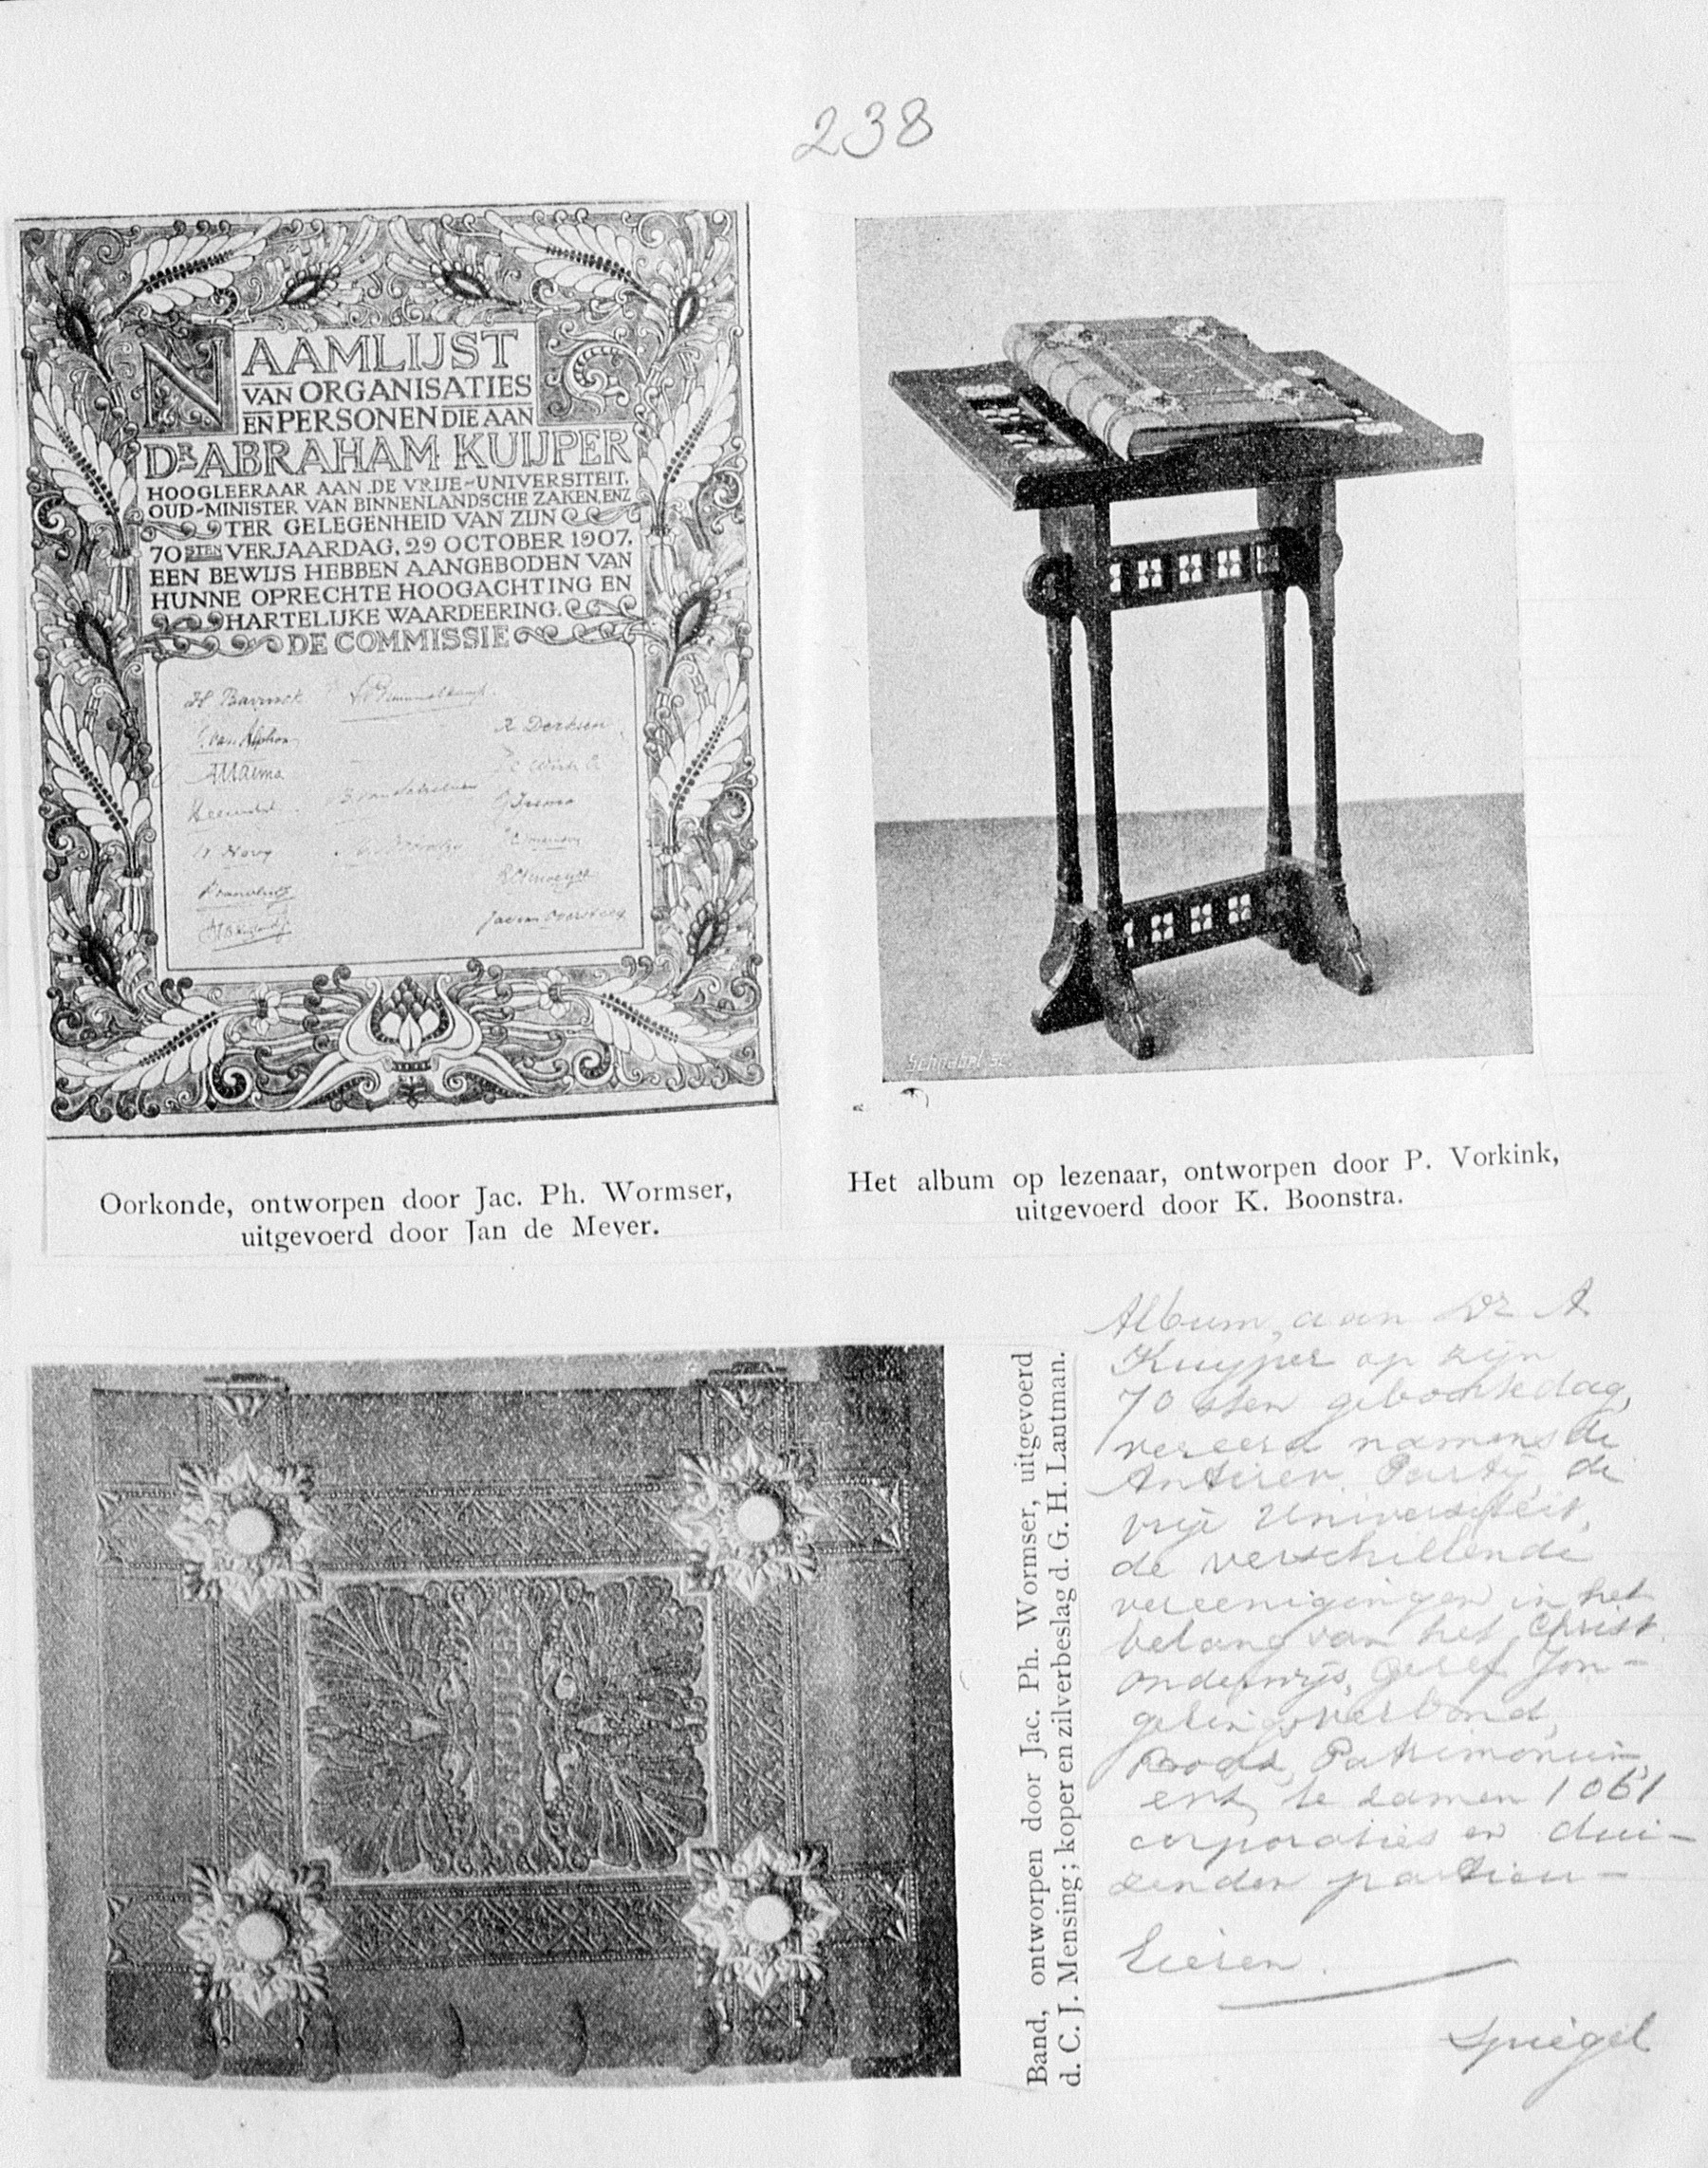 238
NAAMLIJST
VAN ORGANISATIES
EN PERSONEN DIE AAN
DR ABRAHAM KUIJPER
HOOGLEERAAR AAN DE VRIJE-UNIVERSITEIT,
OUD-MINISTER VAN BINNENLANDSCHE ZAKEN, ENZ
TER GELEGENHEID VAN ZIJN
70STEN VERJAARDAG, 29 OCTOBER 1907,
EEN BEWIJS HEBBEN AANGEBODEN VAN
HUNNE OPRECHTE HOOGACHTING EN
HARTELIJKE WAARDEERING.
DE COMMISSIE
H Bavinck
R Derksen
Oorkonde, ontworpen door Jac. Ph. Wormser,
uitgevoerd door Jan de Meyer.
Schiebel sc.
Het album op lezenaar, ontworpen door P. Vorkink,
uitgevoerd door K. Boonstra.
Dr KUIJPER
Band, ontworpen door Jac. Ph. Wormser, uitgevoerd
d. C. J. Mensing; koper en zilverbeslag d. G. H. Lantman.
Album, aan Dr A
Kuyper op zijn
70 sten geboortedag,
vereerd namens de
Antirev. Partij de
vrije Universiteit,
de verschillende
vereenigingen in het
belang van het Christ.
onderwijs, Geref. Jon-
gelingsverbond,
Patrimonium,
enz, te zamen 1061
corporaties en dui-
zenden particu-
lieren.
Spiegel